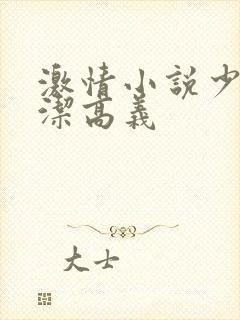 激情小説少
潔高義
大士